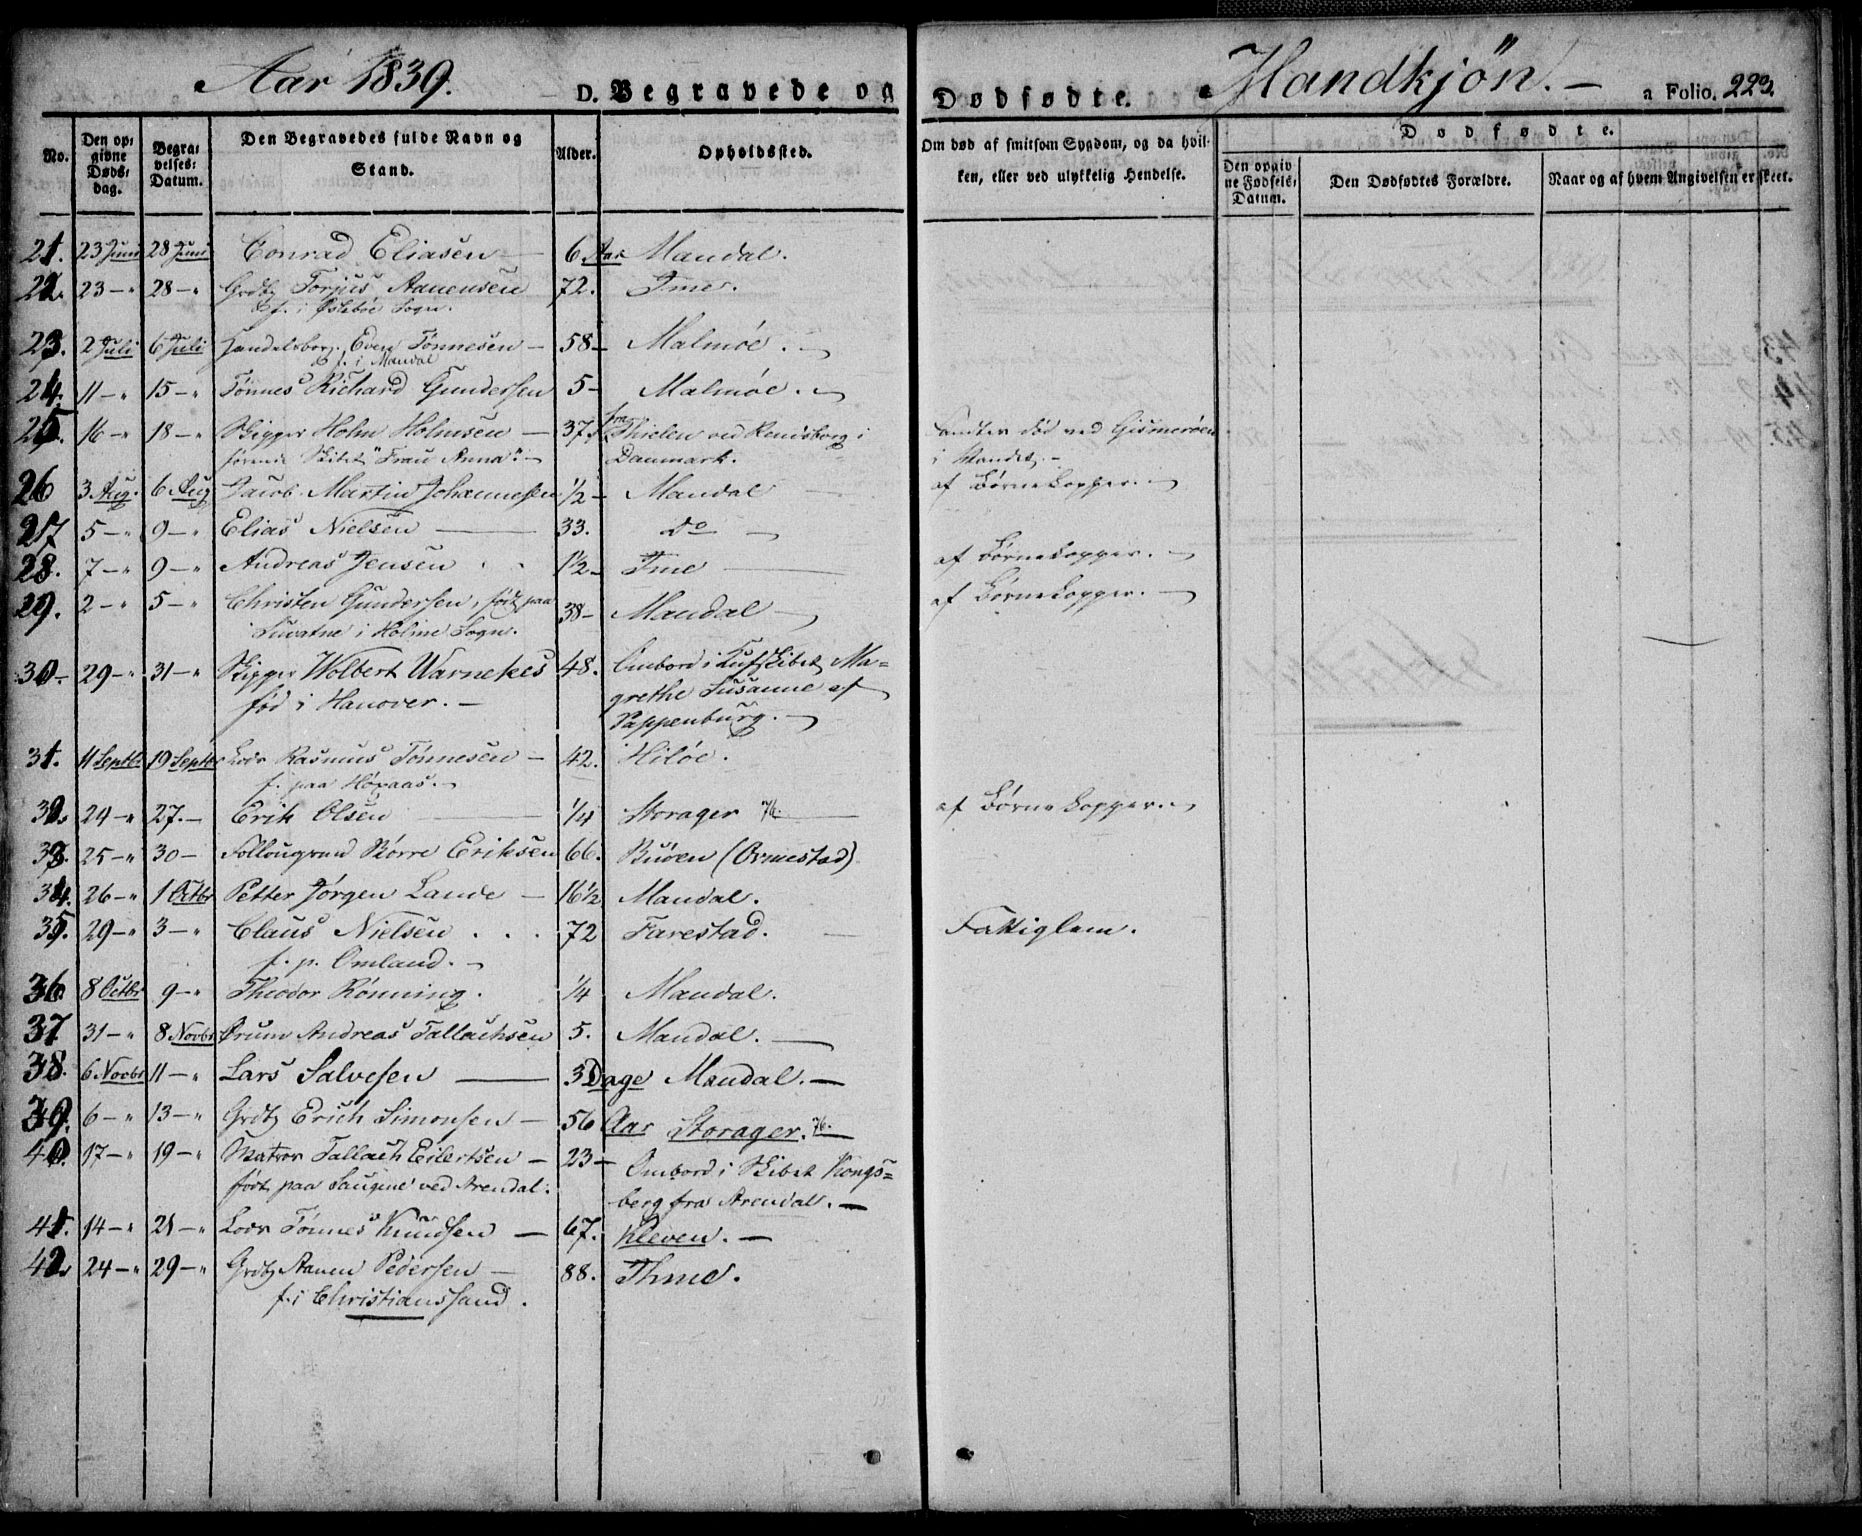 Aar 1839.
D. Begravede og Dødfødte. Mandkjøn. — a Folio. 223.
No. | Den opgivne Dødsdag. | Begravelses-Datum. | Den Begravedes fulde Navn og Stand. | Alder. | Opholdssted. | Om død af smitsom Sygdom, og da hvilken, eller ved ulykkelig Hendelse. | Dødfødte. | Den opgivne Fødsels-Datum. | Den Dødfødtes Forældre. | Naar og af hvem Angivelsen er skeet.
21. 23 Juni 28 Juni Conrad Eliasen — 6 Aar Mandal.
22. 23 — " 28 — " Grdb Torjus Aanensen 72. Ime.
f. i Øslebøe Sogn.
23. 2 Juli 6 Juli Handelsborg. Even Tønnesen — 58 — Malmøe. —
f. i Mandal
24. 11 — " 15 — " Tønnes Richard Gundersen 5 — Malmøe. —
25. 16 — " 18 — " Skipper Holm Holmsen — 37. fra Thielen ved Rendsborg i fandtes død ved Gismerøen
førende Skibet "Frau Anna". — Danmark. i Vandet. —
26 3 Aug. 6 Aug Jacob Martin Johannesen 1/2 — Mandal — af Børnekopper. —
27 5 — " 9 — " Elias Nielsen — 33. do —
28. 7 — " 9 — " Andreas Jensen . . 1 1/2 — Ime — af Børnekopper. —
29. 2 — " 5 — " Christen Gundersen, født paa 38 — Mandal — af Børnekopper. —
i Holme Sogn.
30 — 29 — " 31 — " Skipper Wolbert Warnekes 48. Ombord i Kufskibet Ma=
fød i Hanover. — grethe Susanne af
Pappenburg. —
31. 11 Septbr 19 Septbr Lods Rasmus Tønnesen — 42. Hiløe.
f. paa Høyaas. —
32. 24 — " 27. — Erik Olsen — 1/4 Storager 76. — af Børnekopper. —
33. 25 — " 30 — Børre Eriksen 66. Buøen (Ormestad)
34. 26 — " 1 Octbr Petter Jørgen Lande — 16 1/2 Mandal.
35. 29 — " 3 — " Claus Nielsen . . . 72 Farestad. — Fattiglem.
f. p. Omland. —
36. 8 Octbr 9 — " Theodor Rønning. 1/4 Mandal.
37 31 — " 8 Novbr Ørum Andreas Tallachsen 5. Mandal. —
38. 6 Novbr 11 — " Lars Salvesen — 3 Dage Mandal. —
39. 6 — " 13 — " Grdb Erich Simonsen — 56 Aar Storager. 76. —
40. 17 — " 19 — " Matros Tallach Eilertsen — 23 — Ombord i Skibet Kongs=
født paa Saugene ved Arendal. berg fra Arendal. —
41. 14 — " 21 — " Lods Tønnes Knudsen — 67. Kleven. —
42. 24 — " 29 — " Grdb Aanen Pedersen — 88. Ihme.
f. i Christianssand.